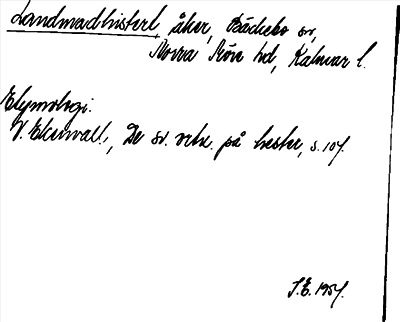 Landmadhisterl, åker, Bäckebo sn,
Norra Möre hd, Kalmar l.
Etymologi.
V. Ekenvall, De sv. ortn. på hester, s. 107.
S.E. 1957.